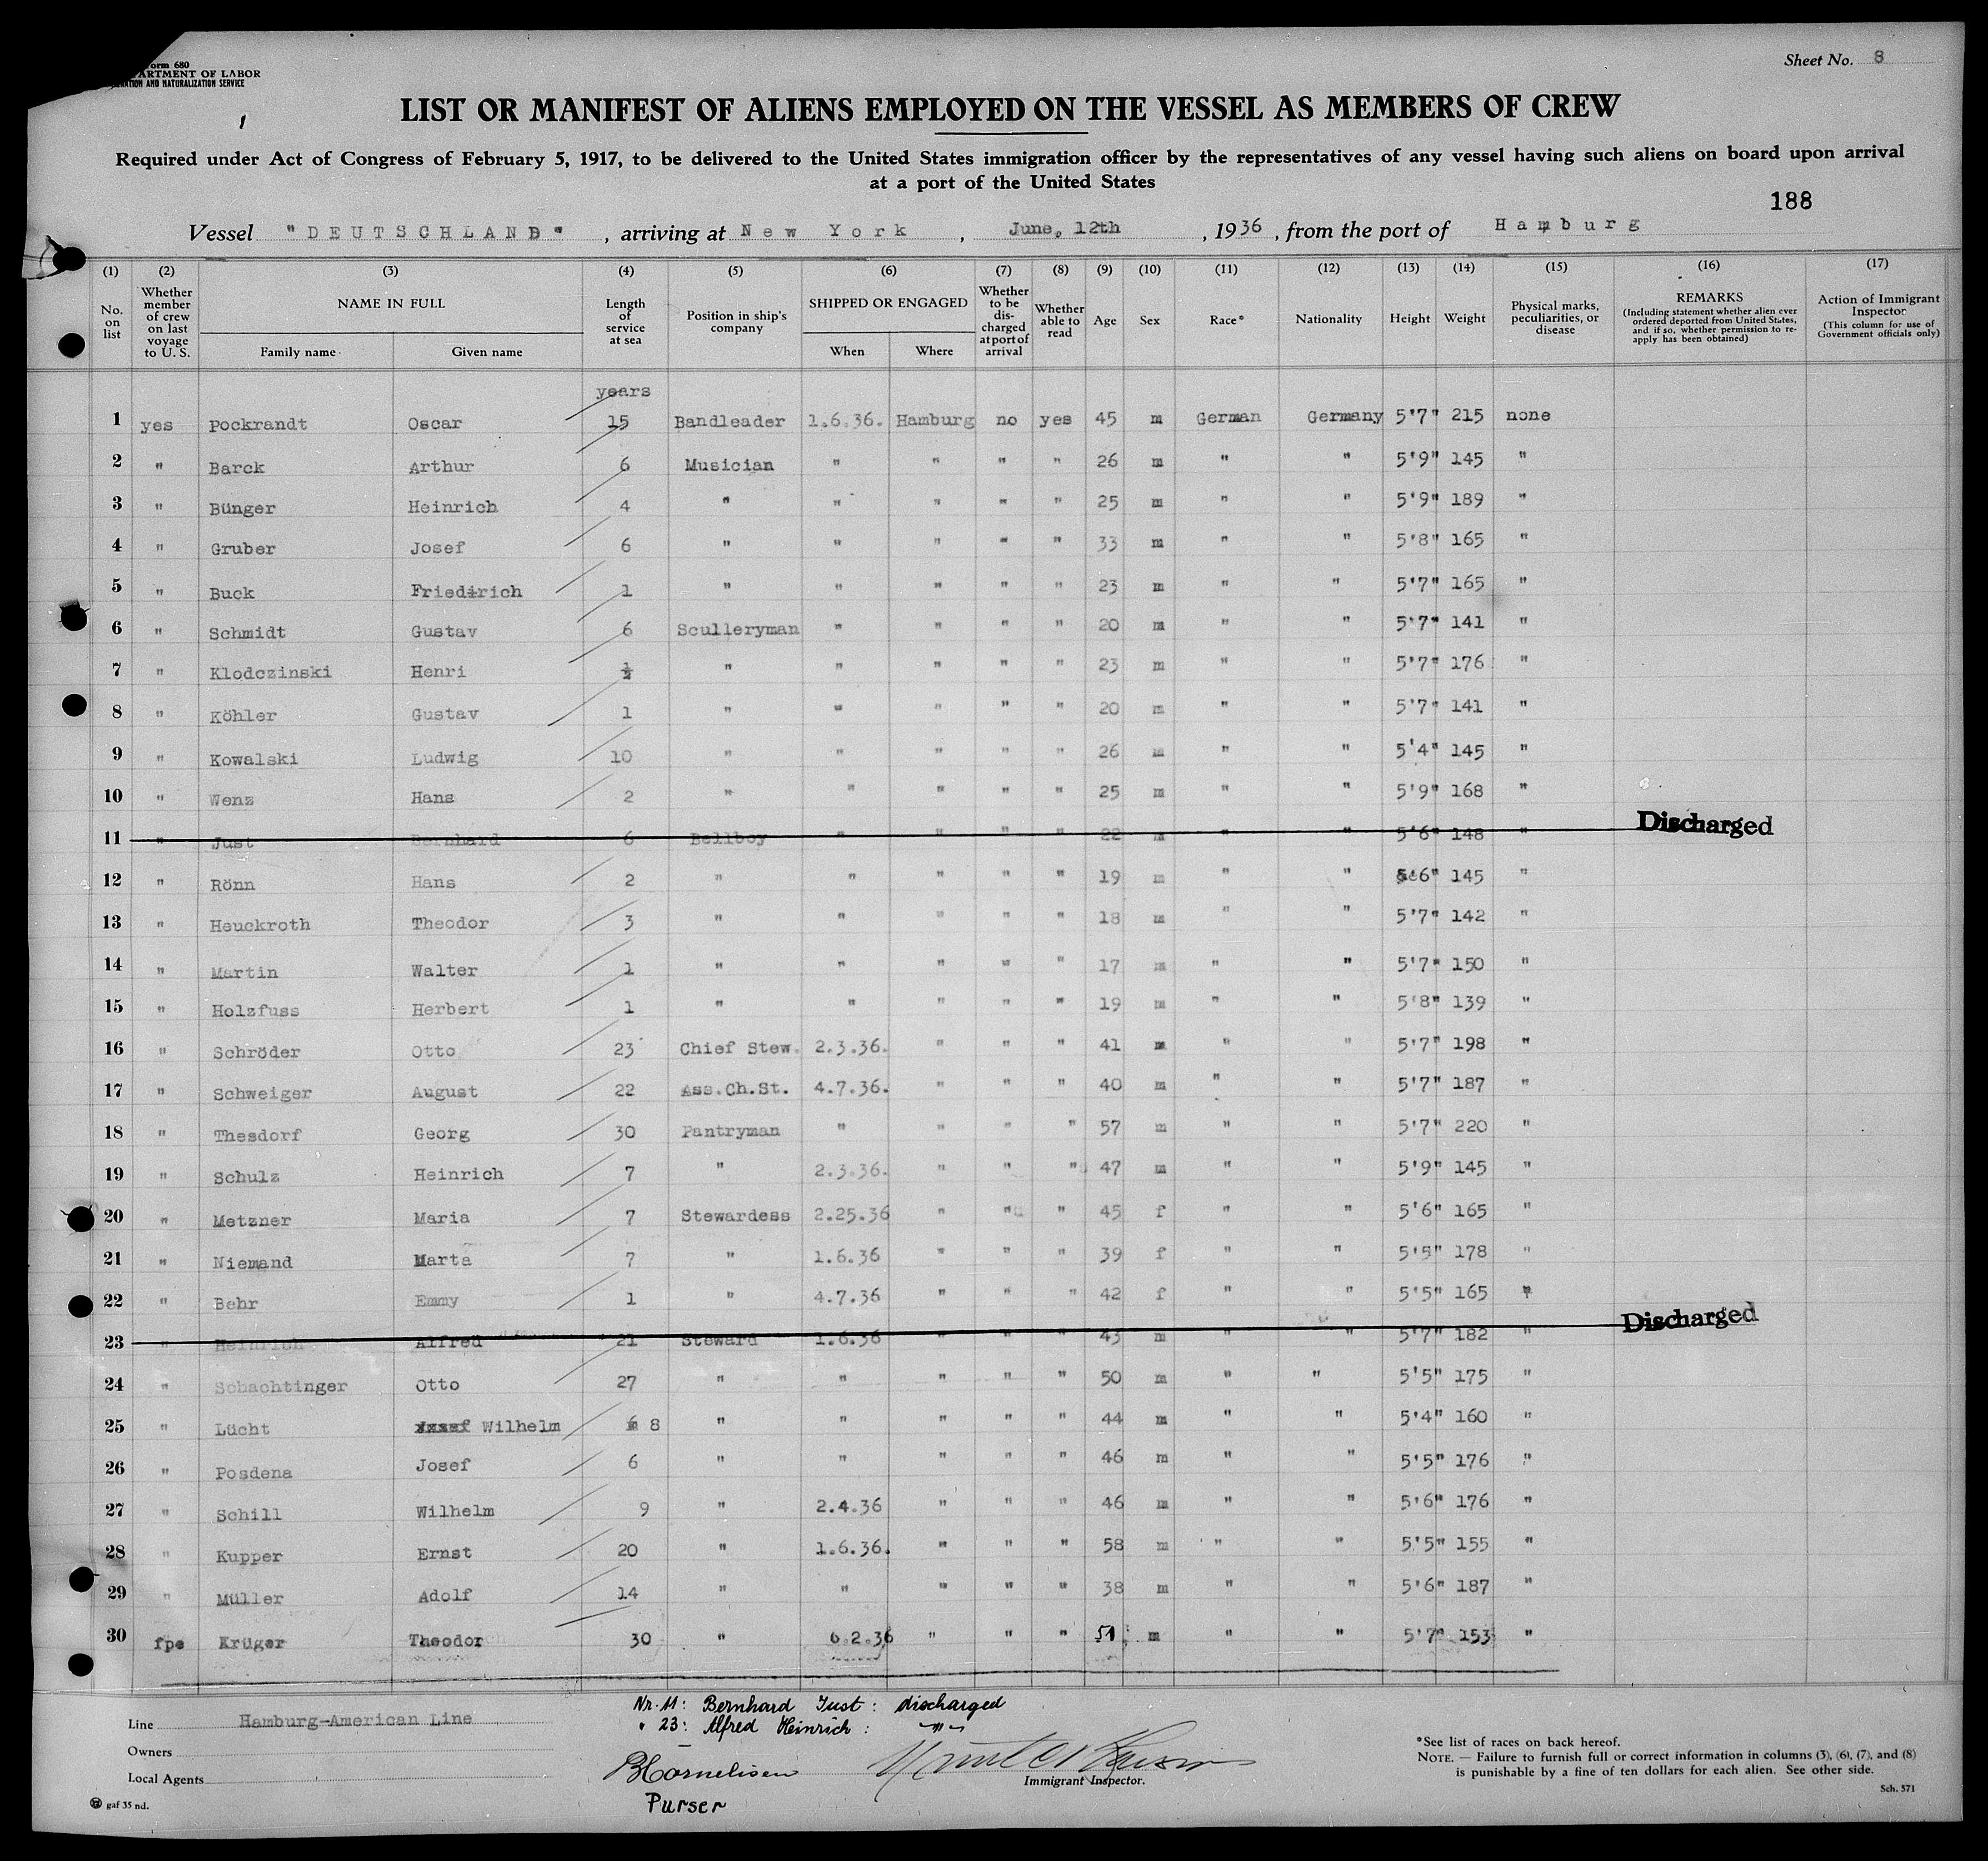 Form 680
DEPARTMENT OF LABOR
IMMIGRATION AND NATURALIZATION SERVICE
Sheet No. 8
LIST OR MANIFEST OF ALIENS EMPLOYED ON THE VESSEL AS MEMBERS OF CREW
Required under Act of Congress of February 5, 1917, to be delivered to the United States immigration officer by the representatives of any vessel having such aliens on board upon arrival
at a port of the United States
188
Vessel "DEUTSCHLAND" , arriving at New York , June, 12th , 1936 , from the port of Hamburg
(1) (2) (3) (4) (5) (6) (7) (8) (9) (10) (11) (12) (13) (14) (15) (16) (17)
No. on list Whether member of crew on last voyage to U. S. NAME IN FULL Family name Given name Length of service at sea Position in ship's company SHIPPED OR ENGAGED When Where Whether to be discharged at port of arrival Whether able to read Age Sex Race* Nationality Height Weight Physical marks, peculiarities, or disease REMARKS (Including statement whether alien ever ordered deported from United States, and if so, whether permission to reapply has been obtained) Action of Immigrant Inspector (This column for use of Government officials only)
years
1 yes Pockrandt Oscar 15 Bandleader 1.6.36. Hamburg no yes 45 m German Germany 5'7" 215 none
2 " Barck Arthur 6 Musician " " " " 26 m " " 5'9" 145 "
3 " Bünger Heinrich 4 " " " " " 25 m " " 5'9" 189 "
4 " Gruber Josef 6 " " " " " 33 m " " 5'8" 165 "
5 " Buck Friedrich 1 " " " " " 23 m " " 5'7" 165 "
6 " Schmidt Gustav 6 Sculleryman " " " " 20 m " " 5'7" 141 "
7 " Klodczinski Henri ½ " " " " " 23 m " " 5'7" 176 "
8 " Köhler Gustav 1 " " " " " 20 m " " 5'7" 141 "
9 " Kowalski Ludwig 10 " " " " " 26 m " " 5'4" 145 "
10 " Wenz Hans 2 " " " " " 25 m " " 5'9" 168 "
11 " Just Bernhard 6 Bellboy " " " " 22 m " " 5'6" 148 " Discharged
12 " Rönn Hans 2 " " " " " 19 m " " 5'6" 145 "
13 " Heuckroth Theodor 3 " " " " " 18 m " " 5'7" 142 "
14 " Martin Walter 1 " " " " " 17 m " " 5'7" 150 "
15 " Holzfuss Herbert 1 " " " " " 19 m " " 5'8" 139 "
16 " Schröder Otto 23 Chief Stew. 2.3.36. " " " 41 m " " 5'7" 198 "
17 " Schweiger August 22 Ass.Ch.St. 4.7.36. " " " 40 m " " 5'7" 187 "
18 " Thesdorf Georg 30 Pantryman " " " " 57 m " " 5'7" 220 "
19 " Schulz Heinrich 7 " 2.3.36. " " " 47 m " " 5'9" 145 "
20 " Metzner Maria 7 Stewardess 2.25.36 " " " 45 f " " 5'6" 165 "
21 " Niemand Marta 7 " 1.6.36 " " " 39 f " " 5'5" 178 "
22 " Behr Emmy 1 " 4.7.36 " " " 42 f " " 5'5" 165 "
23 " Heinrich Alfred 21 Steward 1.6.36 " " " 43 m " " 5'7" 182 " Discharged
24 " Schachtinger Otto 27 " " " " " 50 m " " 5'5" 175 "
25 " Lücht Josef Wilhelm 8 " " " " " 44 m " " 5'4" 160 "
26 " Posdena Josef 6 " " " " " 46 m " " 5'5" 176 "
27 " Schill Wilhelm 9 " 2.4.36 " " " 46 m " " 5'6" 176 "
28 " Kupper Ernst 20 " 1.6.36. " " " 58 m " " 5'5" 155 "
29 " Müller Adolf 14 " " " " " 38 m " " 5'6" 187 "
30 fpe Krüger Theodor 30 " 6.2.36 " " " 51 m " " 5'7" 153 "
Line Hamburg-American Line
Owners
Local Agents
gaf 35 nd.
Nr. 11: Bernhard Just: discharged
" 23: Alfred Heinrich: -"-
BCornelisen
Purser
Immigrant Inspector.
*See list of races on back hereof.
NOTE. — Failure to furnish full or correct information in columns (3), (6), (7), and (8)
is punishable by a fine of ten dollars for each alien. See other side.
Sch. 571